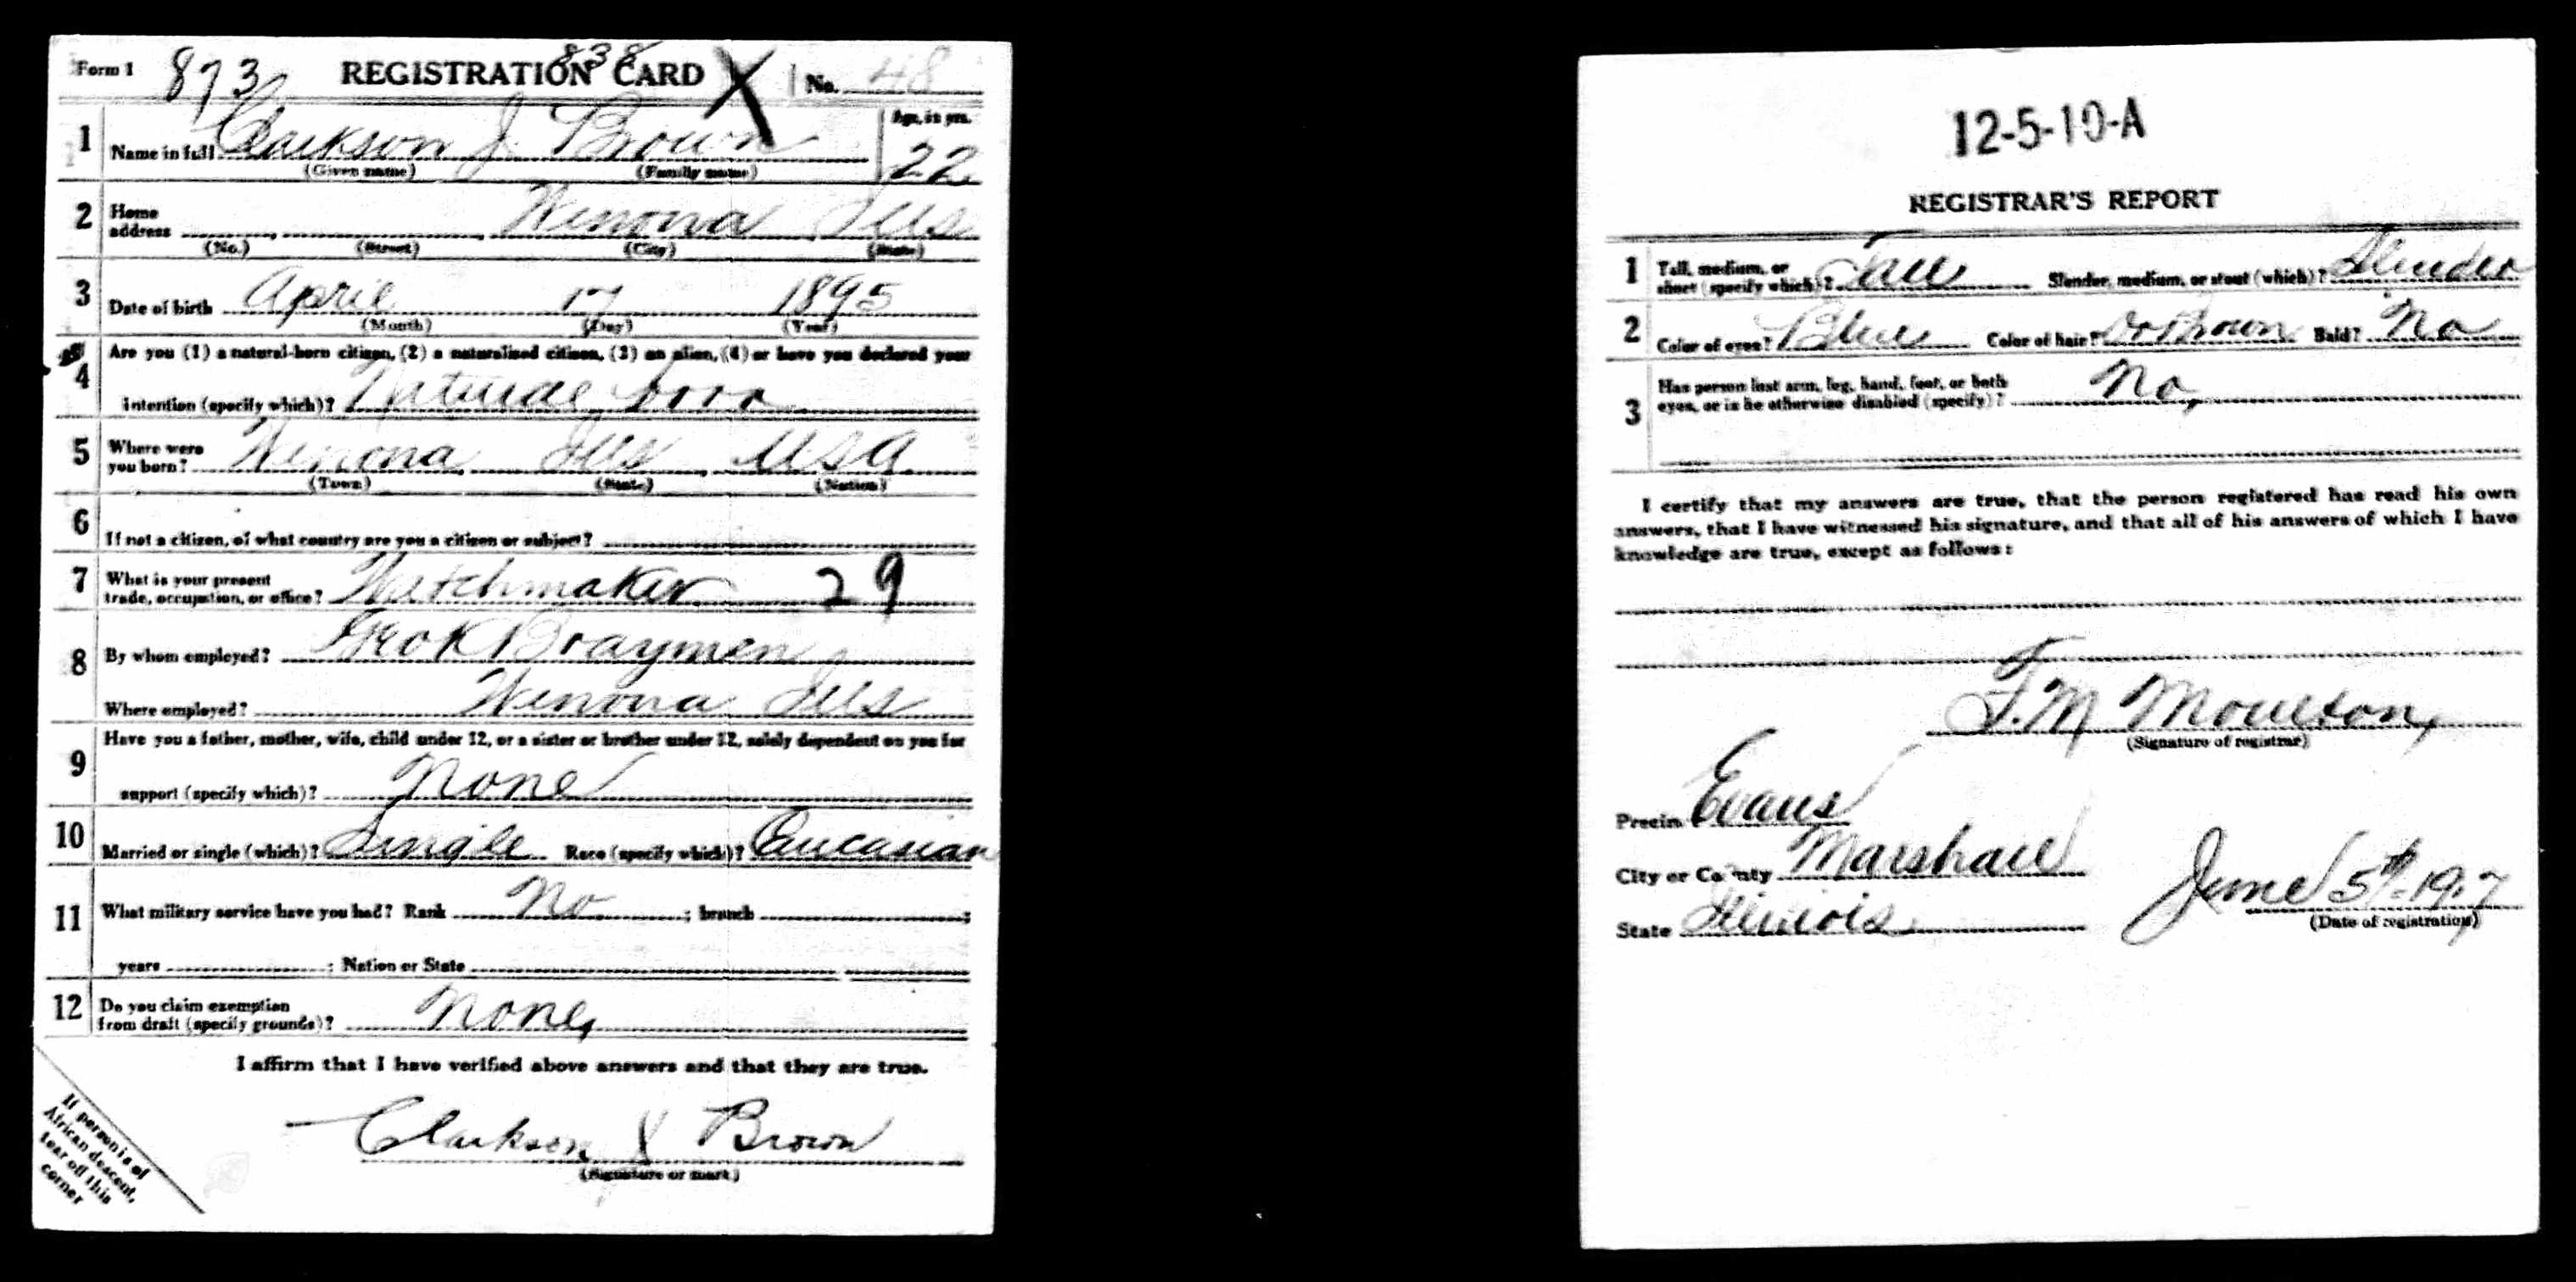 Form 1 873 REGISTRATION CARD 838 X No. 48
1 Name in full Clarkson J. Brown Age, in yrs. 22
(Given name) (Family name)
2 Home address Wenona Ills
(No.) (Street) (City) (State)
3 Date of birth April 17 1895
(Month) (Day) (Year)
4 Are you (1) a natural-born citizen, (2) a naturalized citizen, (3) an alien, (4) or have you declared your
intention (specify which)? Natural born
5 Where were you born? Wenona Ills USA
(Town) (State) (Nation)
6 If not a citizen, of what country are you a citizen or subject?
7 What is your present trade, occupation, or office? Watchmaker 29
8 By whom employed? Geo K Braymen
Where employed? Wenona Ills
9 Have you a father, mother, wife, child under 12, or a sister or brother under 12, solely dependent on you for
support (specify which)? None
10 Married or single (which)? Single Race (specify which)? Caucasian
11 What military service have you had? Rank No ; branch ;
years ; Nation or State
12 Do you claim exemption from draft (specify grounds)? None
I affirm that I have verified above answers and that they are true.
Clarkson J Brown
(Signature or mark)
If person is of
African descent,
tear off this
corner
12-5-10-A
REGISTRAR'S REPORT
1 Tall, medium, or short (specify which)? Tall Slender, medium, or stout (which)? Slender
2 Color of eyes? Blue Color of hair? Brown Bald? No
3 Has person lost arm, leg, hand, foot, or both eyes, or is he otherwise disabled (specify)? No,
I certify that my answers are true, that the person registered has read his own
answers, that I have witnessed his signature, and that all of his answers of which I have
knowledge are true, except as follows:
F. M Moulton,
(Signature of registrar)
Precinct Evans
City or County Marshall
State Illinois June 5th-1917
(Date of registration)